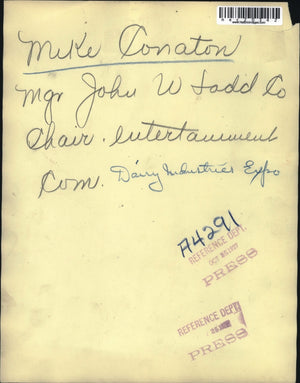 Mike Conaton
Mgr John W Ladd Co
Chair. entertainment
Com. Dairy Industries Expo
A4291
REFERENCE DEPT.
PRESS
REFERENCE DEPT.
PRESS